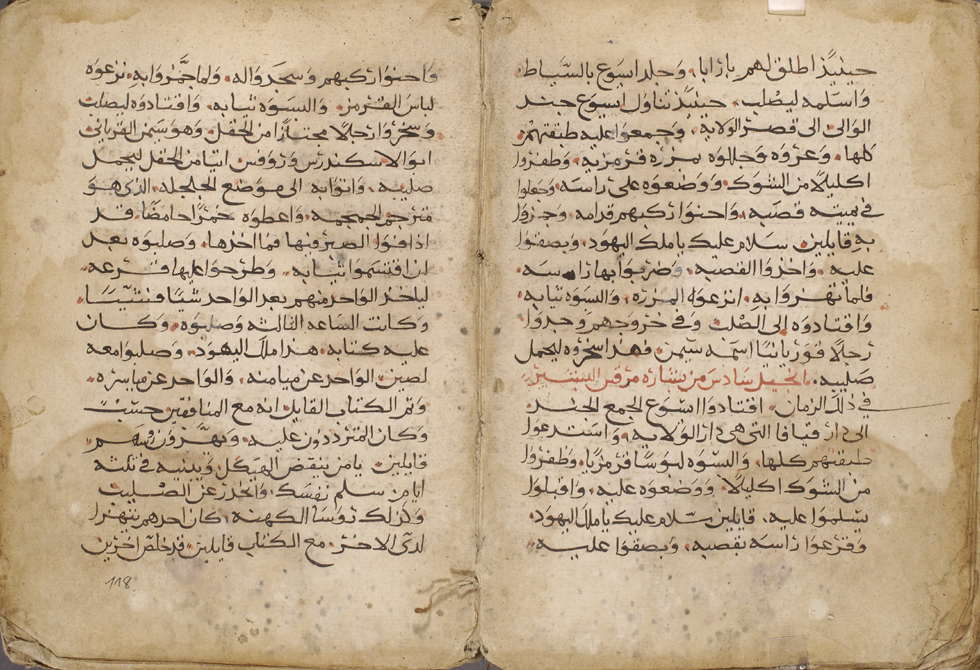 حينيذ اطلق لهم باراباه وجلد ايسوع بالسياط
واسلمه ليصلب حينيذ تناول ايسوع جند
الوالى الى قصر الولايه وجمعوا عليه طبقتهم
كلها وعروه وجللوه بمرره قرمزيه وظفروا
اكليلا من الشوك ووضعوه على راسه وجعلوا
في يمينه قصبه واحنوا ركبهم قدامه وجزوا
به قايلين سلام عليك يا ملك اليهود وبصقوا
عليه واخذوا القصبه وضربوا بها راسه
فلما تهزوا به انزعوا المرره والسوه ثيابه
واقتادوه الى الصلب وفي خروجهم وجدوا
رجلا قوريانيا اسمه سيمن فهذا سخروه ليحمل
صليبه انجيل سادس من بشاره مرقس البشير
في ذلك الزمان اقتادوا ايسوع الجمع الجند
الى دار قيافا التي هي دار الولايه واستدعوا
طبقتهم كلها والسوه لبوسا قرمزيا وظفروا
من الشوك اكليلا ووضعوه عليه واقبلوا
يسلموا عليه قايلين سلام عليك يا ملك اليهود
وقرعوا راسه بقصبه وبصقوا عليه
واحنوا ركبهم وسجدوا له ولما جهزوا به نزعوه
لباس القرمز والسوه ثيابه واقتادوه ليصلب
وسخروا رجلا مجتازا من الحقل وهو سمن القرياني
ابو الاسكندرس وروفس اتيا من الحقل ليحمل
صليبه واتوا به الى موضع الجلجله الذي هو
مترجم الجمجمه واعطوه خمرا حامضا قد
اذافوا الصبر فيها فما اخذها وصلبوه بعد
ان اقتسموا ثيابه وطرحوا عليها قرعه
لياخذ الواحد منهم بعد الواحد شيا فشيا
وكانت الساعه الثالثه وصلبوه وكان
عليه كتابه هذا ملك اليهود وصلبوا معه
لصين الواحد عن ميامنه والواحد عن مياسره
وتم الكتاب القايل انه مع المنافقين حسب
وكان المترددون عليه ويهزون روسهم
قايلين يا من ينقض الهيكل ويبنيه في ثلثه
ايام سلم نفسك وانحدر عن الصليب
وكذلك روسا الكهنه كان احدهم يتهزا
لدى الاخر مع الكتاب قايلين قد خلص اخرين
118